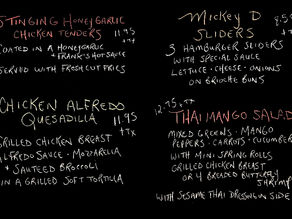 STINGING HONEY GARLIC
CHICKEN TENDERS 11.95
+TX
COATED IN A HONEY GARLIC
+ FRANK'S HOT SAUCE
SERVED WITH FRESH CUT FRIES
MICKEY D
SLIDERS
+TX
3 HAMBURGER SLIDERS
WITH SPECIAL SAUCE
LETTUCE · CHEESE · ONIONS
ON BRIOCHE BUNS
CHICKEN ALFREDO
QUESADILLA 11.95
+TX
GRILLED CHICKEN BREAST
ALFREDO SAUCE · MOZZARELLA
+ SAUTEED BROCCOLI
IN A GRILLED SOFT TORTILLA
12.75 +TX
THAI MANGO SALAD
MIXED GREENS · MANGO
PEPPERS · CARROTS · CUCUMBER
WITH MINI SPRING ROLLS
GRILLED CHICKEN BREAST
OR 4 BREADED BUTTERFLY
SHRIMP
WITH SESAME THAI DRESSING ON SIDE